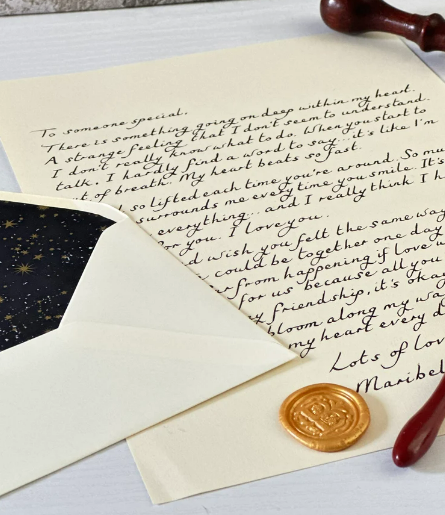 To someone special,
There is something going on deep within my heart.
A strange feeling that I don't seem to understand.
I don't really know what to do. When you start to
talk, I hardly find a word to say... it's like I'm
out of breath. My heart beats so fast.
so lifted each time you're around. So mu
surrounds me every time you smile. It's
everything... and I really think I h
for you. I love you.
d wish you felt the same way
could be together one day
far from happening if love
for us because all you
friendship, it's oka
bloom along my wa
my heart every d
Lots of lov
Maribel
B